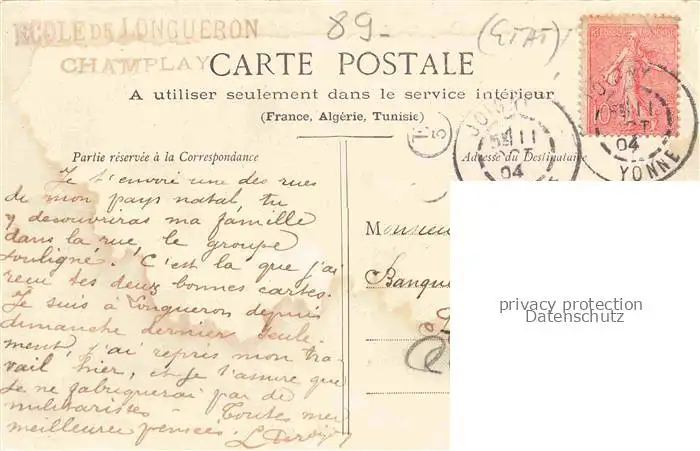 ECOLE DE LONGUERON
CHAMPLAY
89-
(ETAT)
CARTE POSTALE
A utiliser seulement dans le service intérieur
(France, Algérie, Tunisie)
JOIGNY
11
OCT
04
JOIGNY
11
OCT
04
YONNE
Partie réservée à la Correspondance
Adresse du Destinataire
Je t'envoie une des rues
de mon pays natal, tu
y découvriras ma famille
dans la rue, le groupe
souligné. C'est là que j'ai
reçu tes deux bonnes cartes.
Je suis à Longueron depuis
dimanche dernier seule-
ment, j'ai repris mon tra-
vail hier, et je t'assure que
je ne fabriquerai pas de
militaristes -
Toutes mes
meilleures pensées.
Monsieur
Banque
privacy protection
Datenschutz